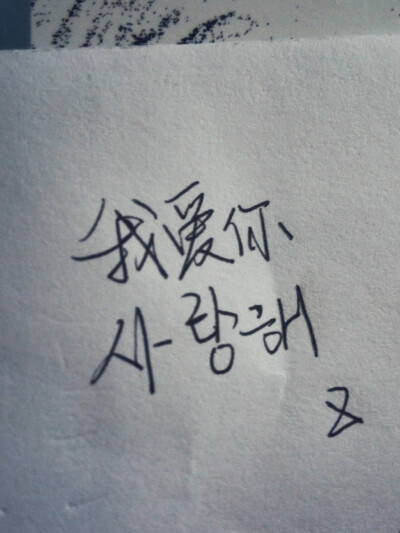 我爱你
사랑해